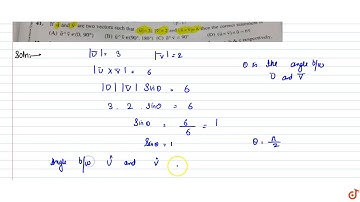 41. If u and v are two vectors such that |u| = 3, |v| = 2 and |u × v| = 6 then the correct
(A) u ^ v ∈ (0, 90°) (B) u ^ v ∈ (90°, 180°) (C)
doubtnut
Soln:- |U| = 3 |V| = 2
|U × V| = 6
|U| |V| Sinθ = 6
3 . 2 . sinθ = 6
Sinθ = 6/6 = 1
Sinθ = 1
θ is the angle b/w
U and V
θ = π/2
Angle b/w U and V .